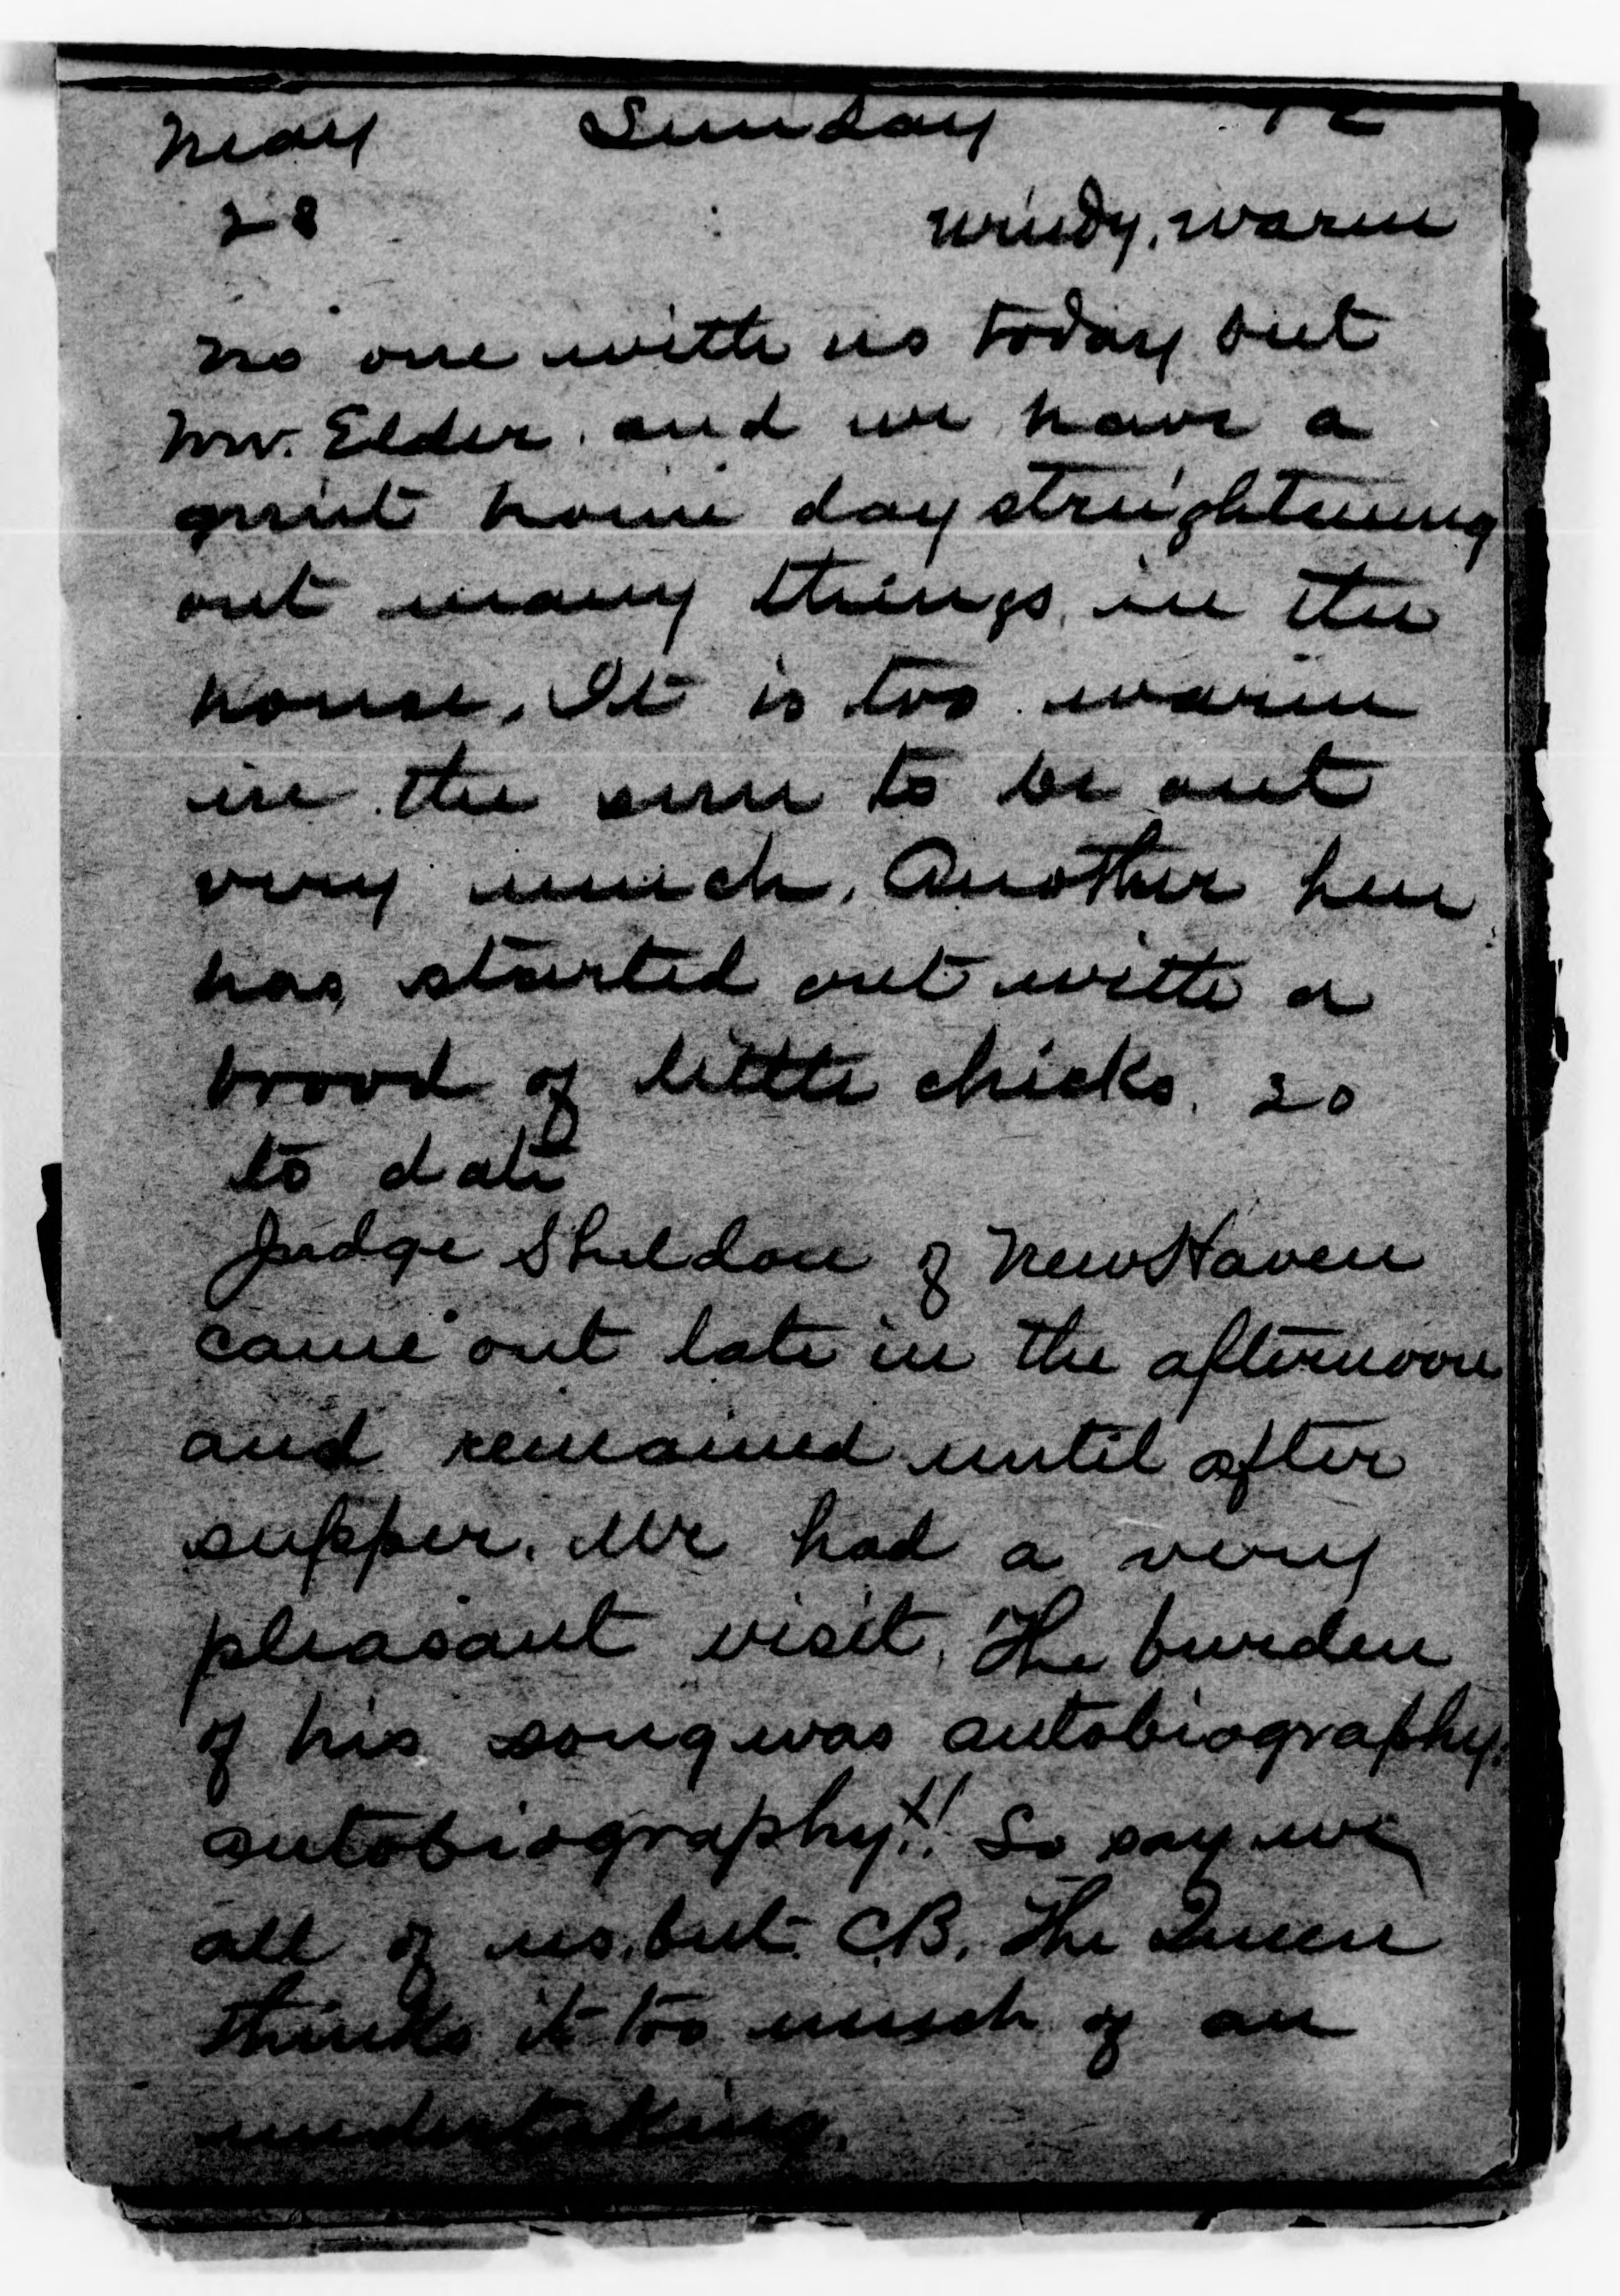 May Sunday
28 Windy, warm
No one with us today but
Mr. Elder. and we have a
quiet home day streightening
out many things in the
house. It is too warm
in the sun to be out
very much. Another hen
has started out with a
brood of little chicks. 20
to date
Judge Sheldon of New Haven
came out late in the afternoon
and remained until after
supper. We had a very
pleasant visit. The burden
of his song was autobiography.
autobiography!! So say we
all of us, but CB. The Queen
thinks it too much of an
undertaking.